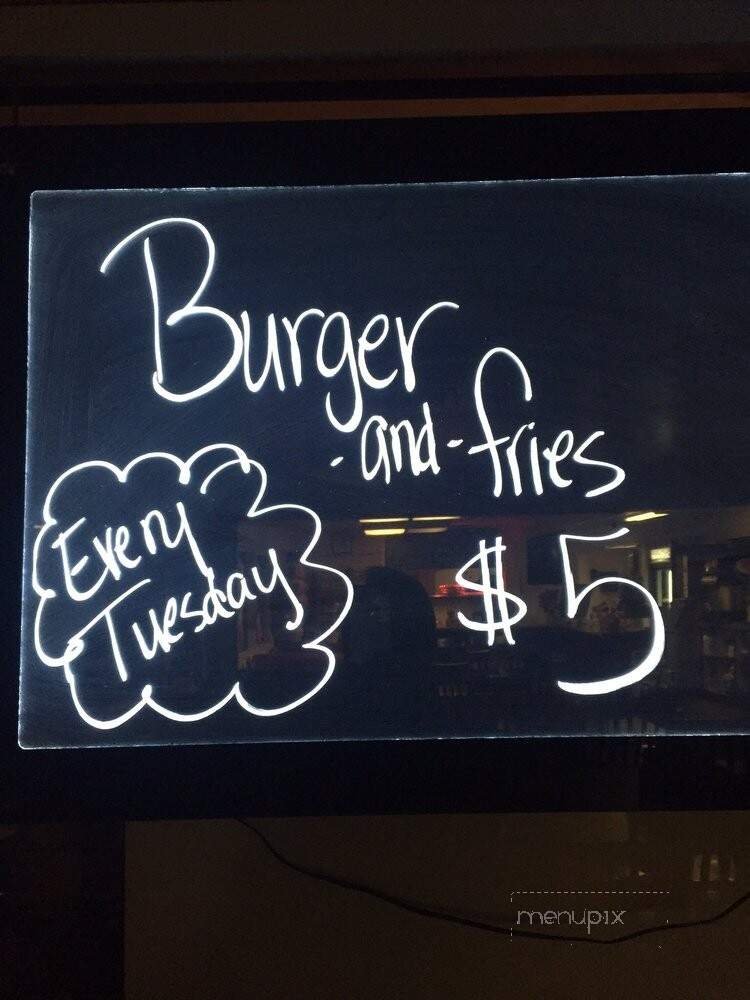 Burger
-and-fries
Every
Tuesday
$5
menupix